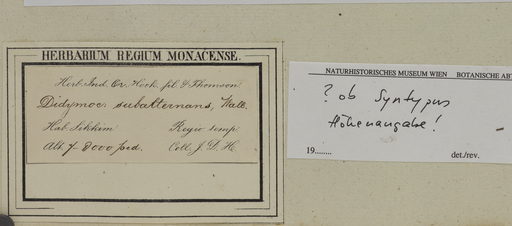 HERBARIUM REGIUM MONACENSE.
Herb. Ind. Or. Hook. fil. & Thomson.
Didymoc. subalternans, Wall.
Hab. Sikkim Regio temp.
Alt. 7-8000 ped. Coll. J. D. H.
NATURHISTORISCHES MUSEUM WIEN BOTANISCHE ABT
? ob Syntypus
Höhenangabe!
19........ det./rev.